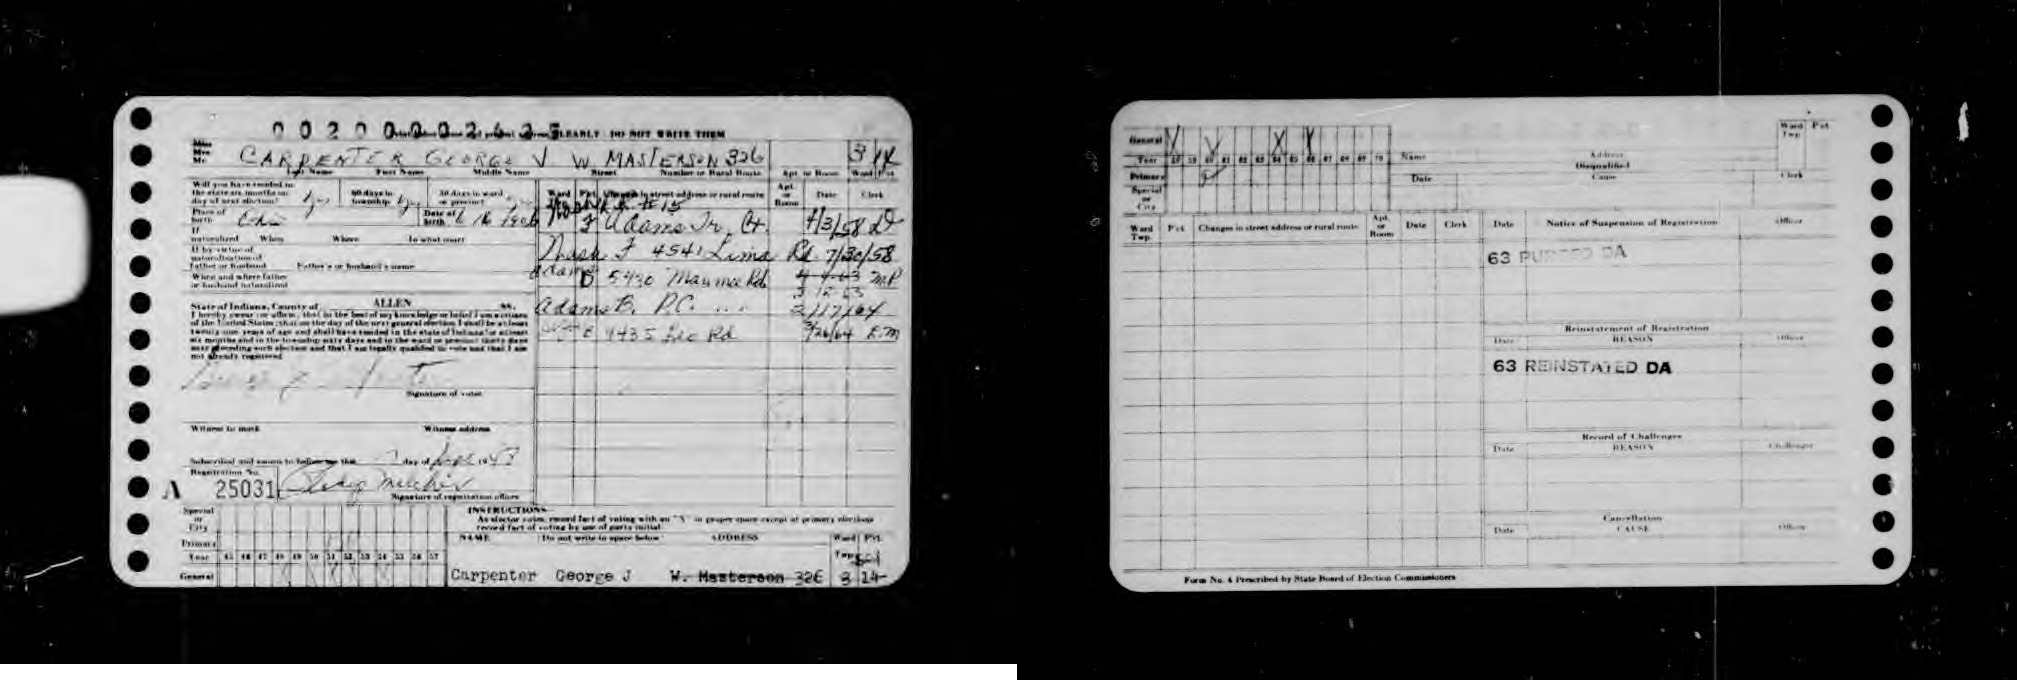 00200002625 CLEARLY DO NOT WRITE THEM
Miss
Mrs.
Mr. CARPENTER GEORGE J W. MASTERSON 326 3 14
Last Name First Name Middle Name Street Number or Rural Route Apt. or Room Ward Pct.
Will you have resided in the state six months on day of next election? yes 60 days in township yes 30 days in ward or precinct yes
Place of birth Ohio Date of birth
If naturalized When Where In what court
If by virtue of naturalization of Father or Husband Father's or husband's name
When and where father or husband naturalized
State of Indiana, County of ALLEN ss.
I hereby swear (or affirm) that to the best of my knowledge or belief I am a citizen
of the United States; that on the day of the next general election I shall be at least
twenty-one years of age and shall have resided in the state of Indiana for at least
six months and in the township sixty days and in the ward or precinct thirty days
next preceding such election and that I am legally qualified to vote and that I am
not already registered
Signature of voter
Witness to mark Witness address
Subscribed and sworn to before me this day of Sept 19
Registration No.
A 25031
Signature of registration officer
Ward Pct. Changes in street address or rural route Apt. or Room Date Clerk
F Adams Tr. Ct. 4/3/58
Wash F 4541 Lima Rd 7/30/58
Adams D 5430 Maumee Rd 4-4-63 MP
3 12 63
Adams B. P.C. ... 2/17/64
E 9435 Leo Rd 3/26/64 E.M
Special or City
Primary
Year 45 46 47 48 49 50 51 52 53 54 55 56 57
General
INSTRUCTIONS
As elector votes, record fact of voting with an "X" in proper space except at primary elections
record fact of voting by use of party initial.
NAME Do not write in space below ADDRESS Ward Pct.
Twp.
Carpenter George J W. Masterson 326 3 14
General
Year 58 59 60 61 62 63 64 65 66 67 68 69 70
Primary
Special or City
Name Address Ward Twp. Pct.
Disqualified
Date Cause Clerk
Ward Twp. Pct. Changes in street address or rural route Apt. or Room Date Clerk
Date Notice of Suspension of Registration Officer
63 PURGED DA
Reinstatement of Registration
Date REASON Officer
63 REINSTATED DA
Record of Challenges
Date REASON Challenger
Cancellation
Date CAUSE Officer
Form No. 4 Prescribed by State Board of Election Commissioners